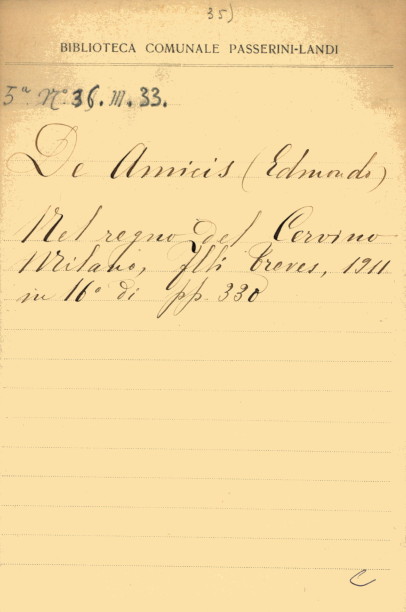 35)
BIBLIOTECA COMUNALE PASSERINI-LANDI
5ª Nº 36. M. 33.
De Amicis (Edmondo)
Nel regno del Cervino
Milano, flli Treves, 1911
in 16º di pp. 330
C